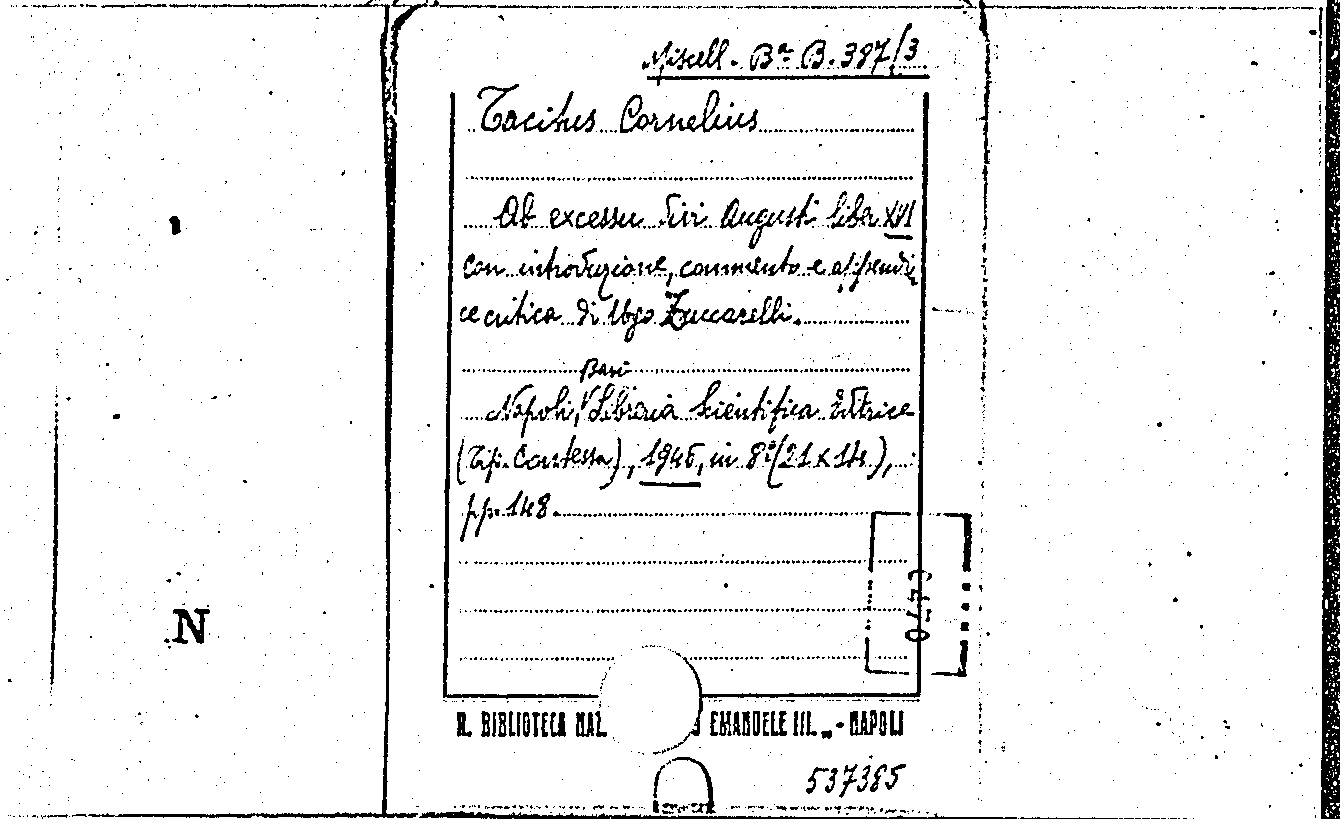 Miscell. Bª B. 387/3
Tacitus Cornelius
Ab excessu Divi Augusti liber XVI
con introduzione, commento e appendi
ce critica di Ugo Zuccarelli.
Bari
Napoli, Libreria Scientifica Editrice
(Tip. Contessa), 1946, in 8º (21 x 14),
pp. 148.
C470
N
R. BIBLIOTECA NAZ. EMANUELE III. „ - NAPOLI
537385